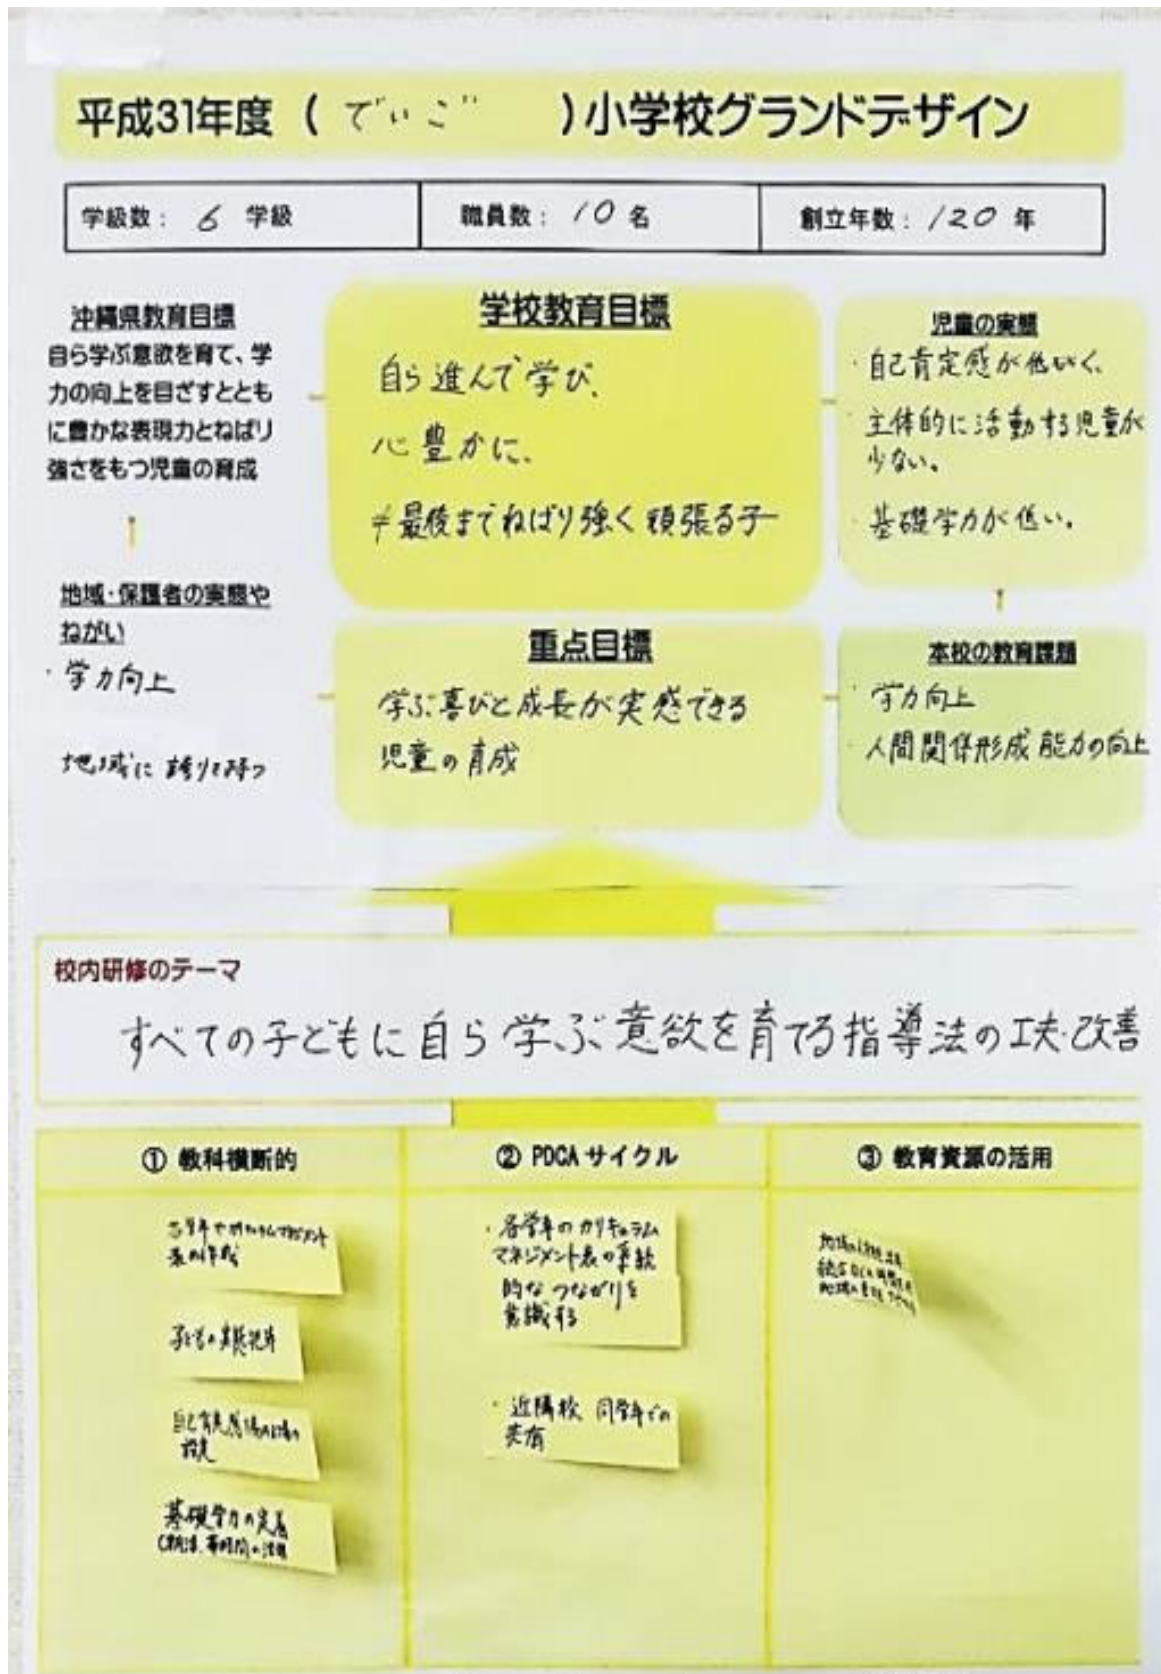 平成31年度 ( でいご )小学校グランドデザイン
学級数: 6 学級
職員数: 10 名
創立年数: 120 年
沖縄県教育目標
自ら学ぶ意欲を育て、学
力の向上を目ざすととも
に豊かな表現力とねばり
強さをもつ児童の育成
地域・保護者の実態や
ねがい
・学力向上
地域に誇りを持つ
学校教育目標
自ら進んで学び、
心豊かに、
最後までねばり強く頑張る子
重点目標
学ぶ喜びと成長が実感できる
児童の育成
児童の実態
・自己肯定感が低く、
・主体的に活動する児童が
少ない。
・基礎学力が低い。
本校の教育課題
・学力向上
・人間関係形成能力の向上
校内研修のテーマ
すべての子どもに自ら学ぶ意欲を育てる指導法の工夫・改善
① 教科横断的
表の作成
子どもの実態把握
設定
基礎学力の定着
② PDCA サイクル
・各学年のカリキュラム
マネジメント表の系統
的なつながりを
意識する
・近隣校、同学年での
共有
③ 教育資源の活用